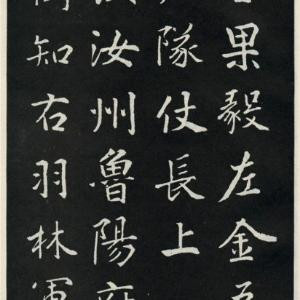 果毅左金吾
隊仗長上
汝州魯陽府
知右羽林軍